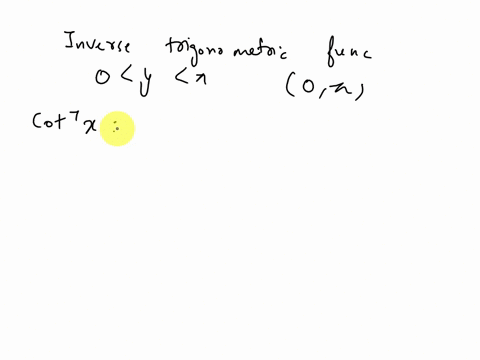 Inverse trigonometric func
0 < y < π (0, π)
Cot⁻¹ x :